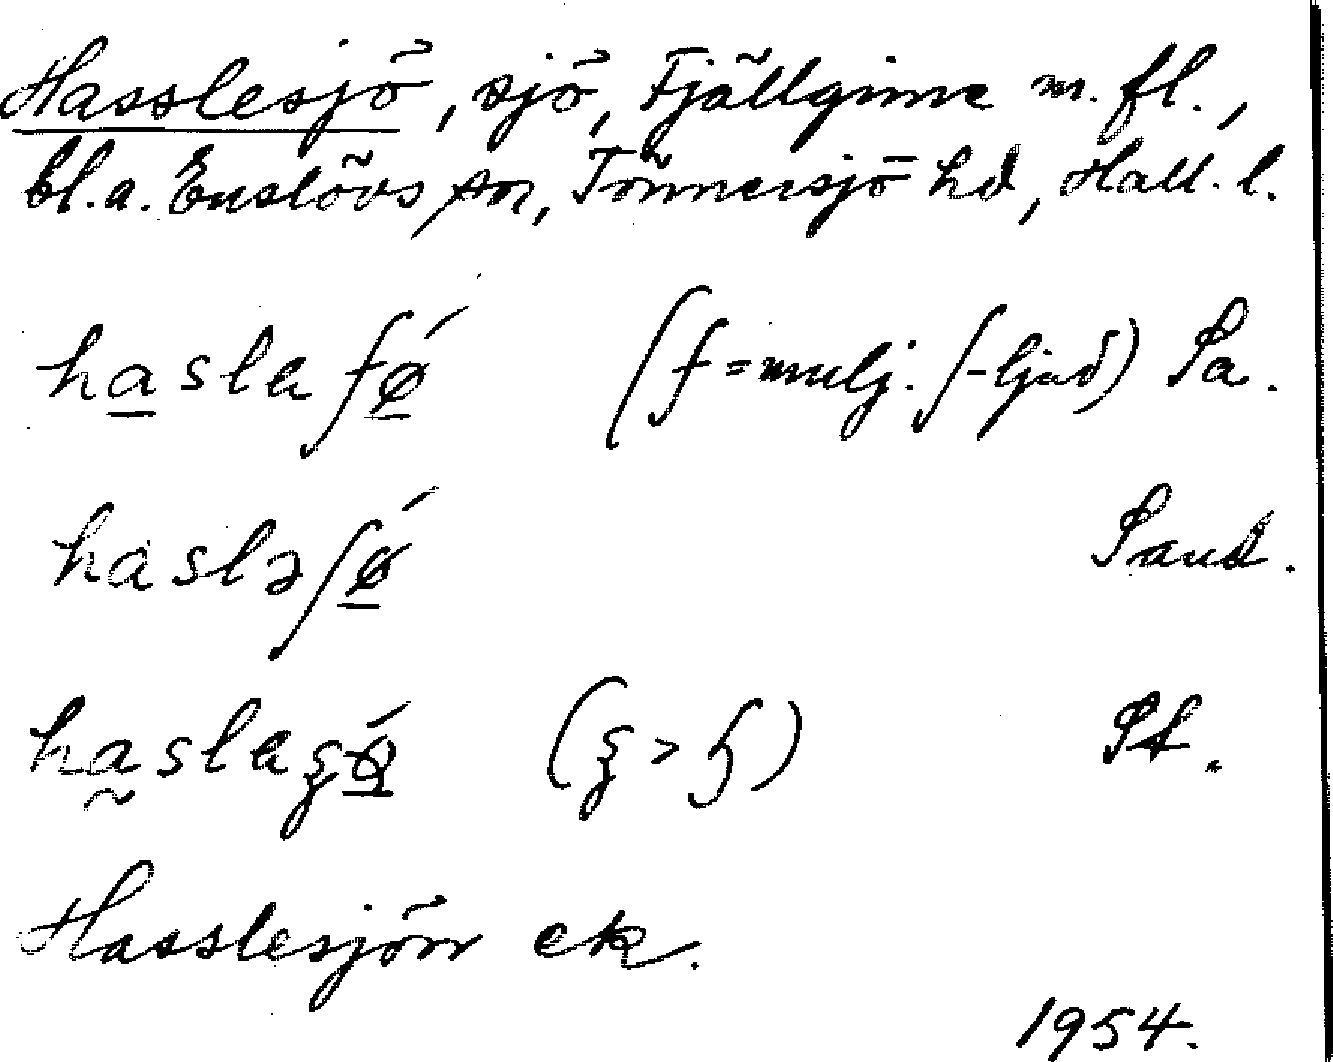 Hasslesjö, sjö, Fjällginne m. fl.,
bl.a. Enslövs sn, Tönnersjö hd, Hall. l.
haslaʃǿ (ʃ = mulj. ʃ-ljud) Sa.
hasləʃǿ Sand.
haslaʂǿ St.
Hasslesjön ek.
1954.